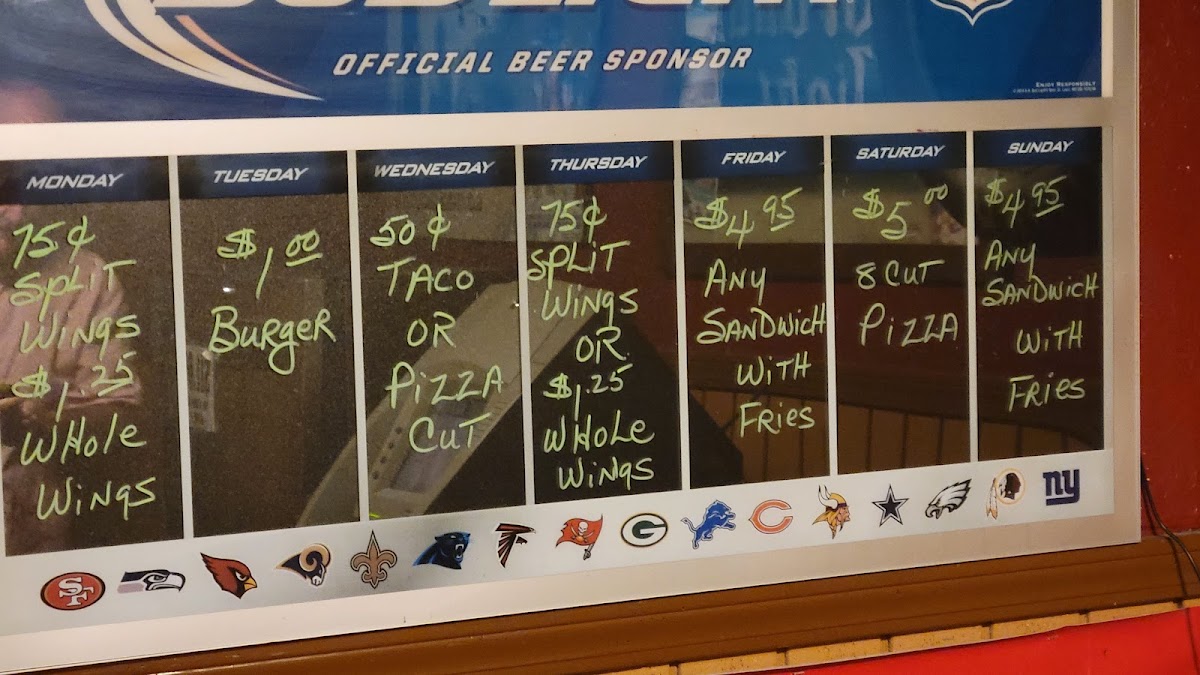 OFFICIAL BEER SPONSOR
ENJOY RESPONSIBLY
MONDAY
75¢
SPLIT
WINGS
$1.25
WHOLE
WINGS
TUESDAY
$1.00
BURGER
WEDNESDAY
50¢
TACO
OR
PIZZA
CUT
THURSDAY
75¢
SPLIT
WINGS
OR
$1.25
WHOLE
WINGS
FRIDAY
$4.95
ANY
SANDWICH
WITH
FRIES
SATURDAY
$5.00
8 CUT
PIZZA
SUNDAY
$4.95
ANY
SANDWICH
WITH
FRIES
SF
G
C
ny